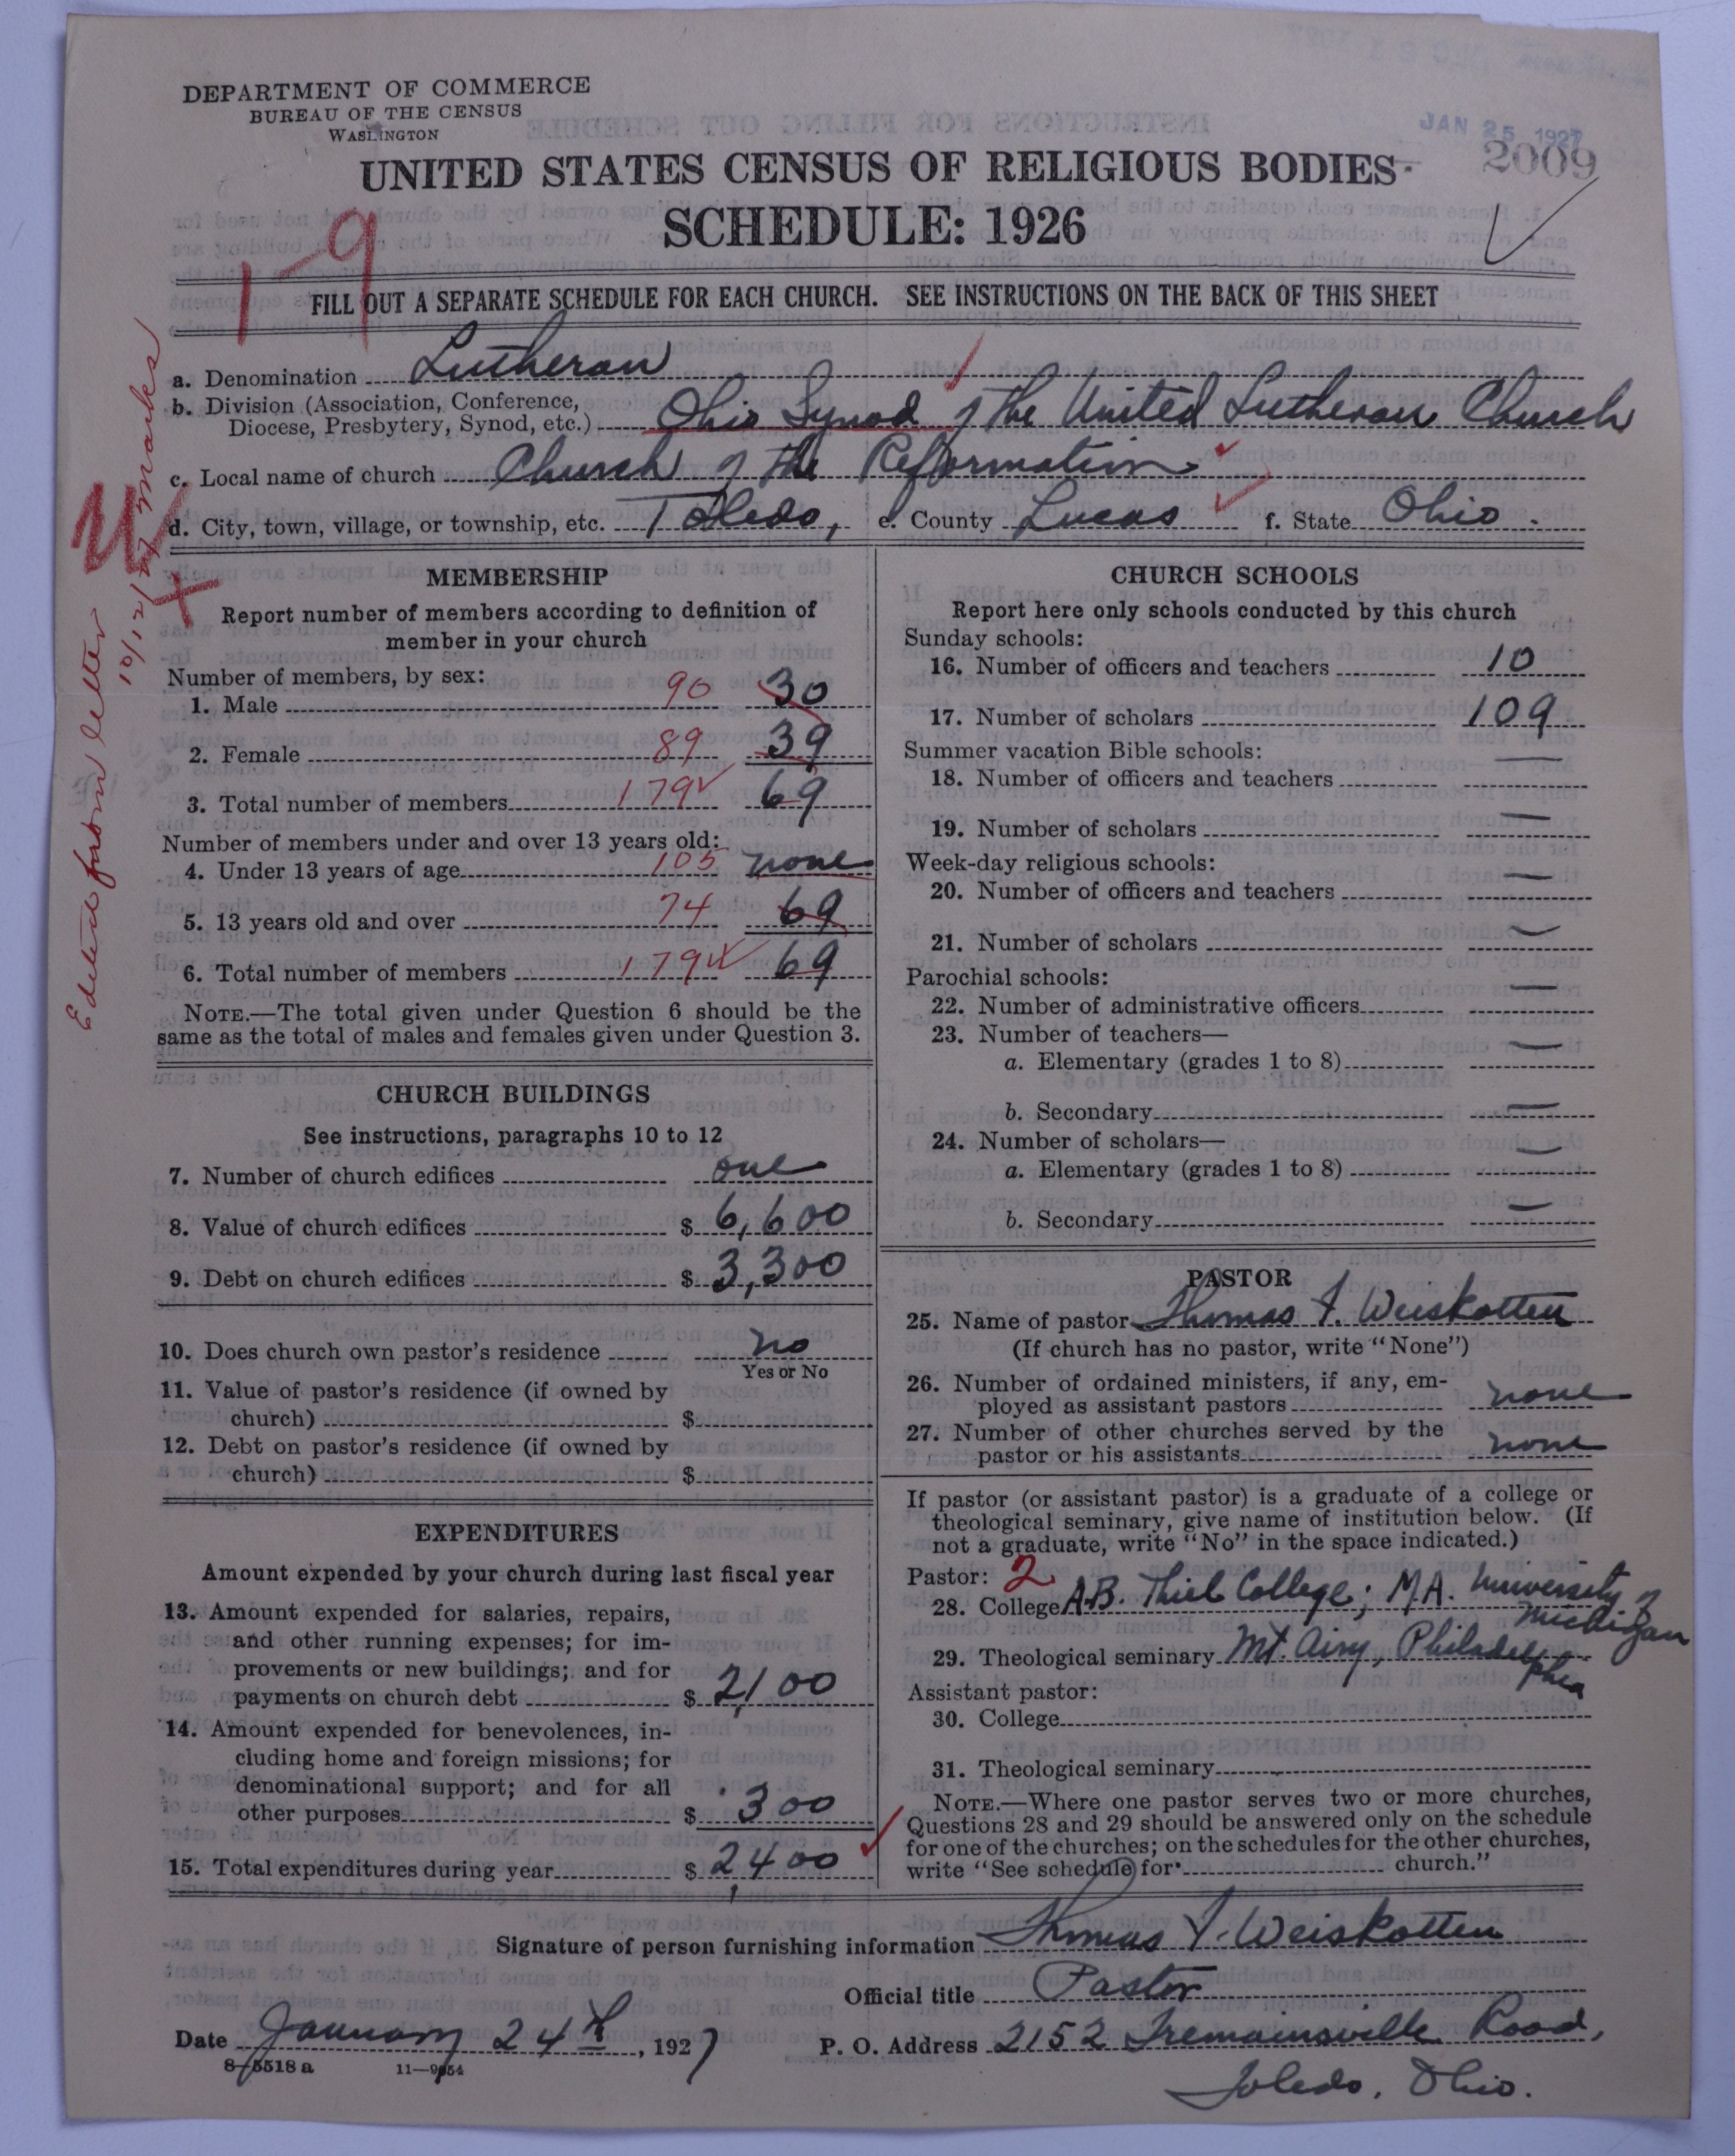 DEPARTMENT OF COMMERCE
BUREAU OF THE CENSUS
WASHINGTON
JAN 25 1927
2009
UNITED STATES CENSUS OF RELIGIOUS BODIES
SCHEDULE: 1926
1-9
FILL OUT A SEPARATE SCHEDULE FOR EACH CHURCH. SEE INSTRUCTIONS ON THE BACK OF THIS SHEET
a. Denomination Lutheran
b. Division (Association, Conference,
Diocese, Presbytery, Synod, etc.) Ohio Synod of the United Lutheran Church
c. Local name of church Church of the Reformation
d. City, town, village, or township, etc. Toledo, e. County Lucas f. State Ohio.
Edited from letter
10/12/27 Marks
MEMBERSHIP
Report number of members according to definition of
member in your church
Number of members, by sex:
1. Male 90 30
2. Female 89 39
3. Total number of members 179 69
Number of members under and over 13 years old:
4. Under 13 years of age 105 none
5. 13 years old and over 74 69
6. Total number of members 179 69
NOTE.—The total given under Question 6 should be the
same as the total of males and females given under Question 3.
CHURCH BUILDINGS
See instructions, paragraphs 10 to 12
7. Number of church edifices one
8. Value of church edifices $ 6,600
9. Debt on church edifices $ 3,300
10. Does church own pastor's residence no
Yes or No
11. Value of pastor's residence (if owned by
church) $
12. Debt on pastor's residence (if owned by
church) $
EXPENDITURES
Amount expended by your church during last fiscal year
13. Amount expended for salaries, repairs,
and other running expenses; for im-
provements or new buildings; and for
payments on church debt $ 2,100
14. Amount expended for benevolences, in-
cluding home and foreign missions; for
denominational support; and for all
other purposes $ 300
15. Total expenditures during year $ 2,400
CHURCH SCHOOLS
Report here only schools conducted by this church
Sunday schools:
16. Number of officers and teachers 10
17. Number of scholars 109
Summer vacation Bible schools:
18. Number of officers and teachers —
19. Number of scholars —
Week-day religious schools:
20. Number of officers and teachers —
21. Number of scholars —
Parochial schools:
22. Number of administrative officers —
23. Number of teachers—
a. Elementary (grades 1 to 8) —
b. Secondary —
24. Number of scholars—
a. Elementary (grades 1 to 8) —
b. Secondary —
PASTOR
25. Name of pastor Thomas F. Weiskotten
(If church has no pastor, write "None")
26. Number of ordained ministers, if any, em-
ployed as assistant pastors none
27. Number of other churches served by the
pastor or his assistants none
If pastor (or assistant pastor) is a graduate of a college or
theological seminary, give name of institution below. (If
not a graduate, write "No" in the space indicated.)
Pastor: 2
28. College A.B. Thiel College; M.A. University of
Michigan
29. Theological seminary Mt. Airy, Philadelphia
Assistant pastor:
30. College
31. Theological seminary
NOTE.—Where one pastor serves two or more churches,
Questions 28 and 29 should be answered only on the schedule
for one of the churches; on the schedules for the other churches,
write "See schedule for church."
Signature of person furnishing information Thomas F. Weiskotten
Official title Pastor
Date January 24th, 1927 P. O. Address 2152 Tremainsville Road,
8-5518 a 11-9054 Toledo, Ohio.